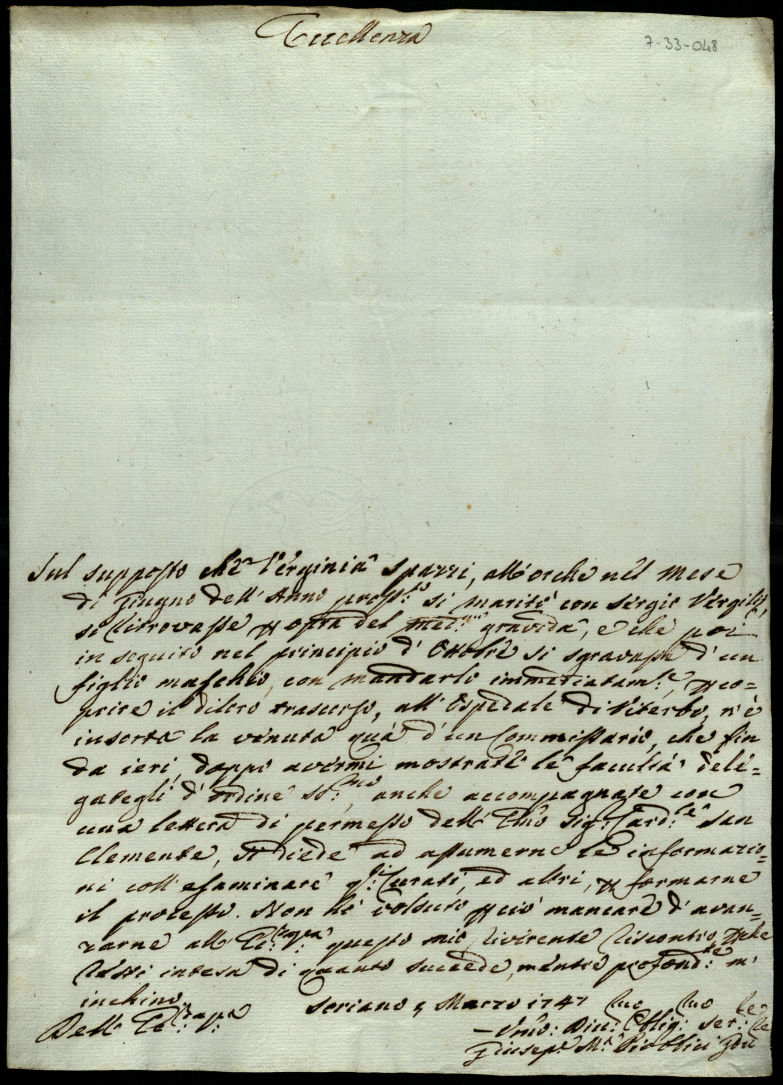 Eccellenza
7-33-048
Sul supposto che Verginia Spazzi, all'orche nel mese
di Giugno dell'Anno pross:to si maritò con Sergio Vergili,
si ritrovasse p opra del med:mo gravida, e che poi
in seguito nel principio d'Ottobre si sgravasse d'un
figlio maschio, con mandarlo immediatam:te, p co=
prire il di loro trascurso, all'Ospedale di Viterbo, n'è
insorta la venuta quà d'un Commissario, che fin
da ieri, doppo avermi mostrate le facultà dele=
gategli d'ordine SS:mo, anche accompagnate con
una lettera di permesso dell'Emo Sig: Card:le San
Clemente, si diede ad assumerne le informazio=
ni coll'esaminare q:ti Curati, ed altri, p formarne
il processo. Non hò voluto p ciò mancare d'avan=
zarne all' questo mio riverente riscontro p che
resti intesa di quanto succede, mentre profond:te m'
inchino
Soriano 5 Marzo 1747
Dell'
Giusep:e M:a